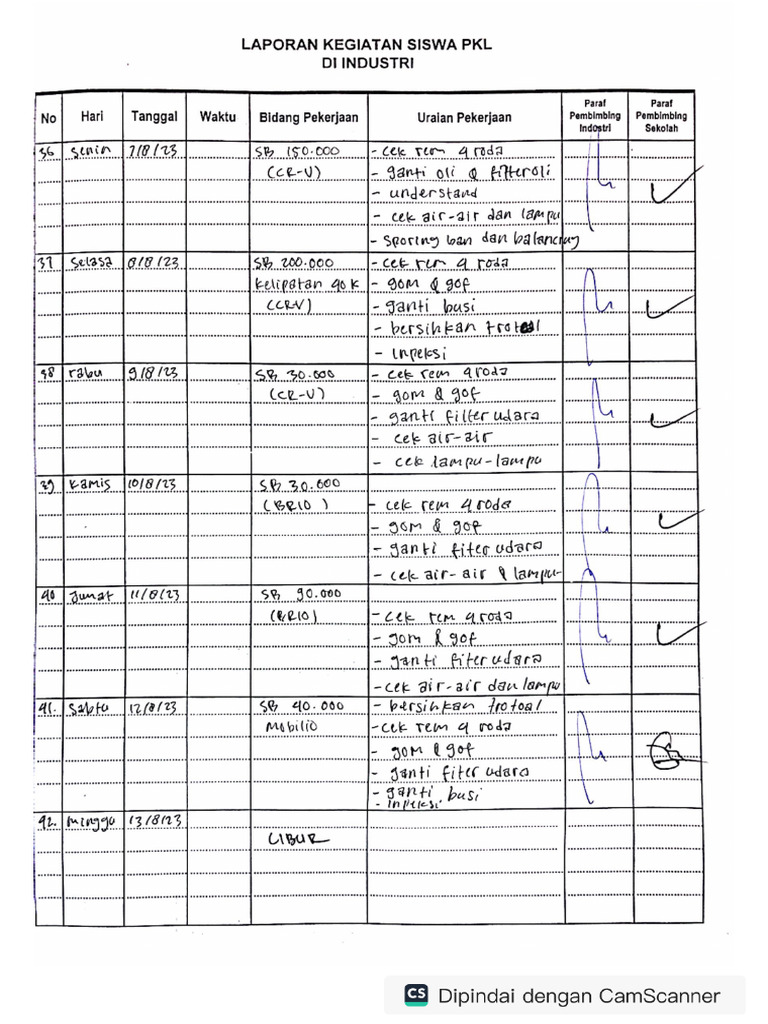 LAPORAN KEGIATAN SISWA PKL
DI INDUSTRI
No Hari Tanggal Waktu Bidang Pekerjaan Uraian Pekerjaan Paraf Pembimbing Industri Paraf Pembimbing Sekolah
36 Senin 7/8/23 SB 150.000 - cek rem 4 roda
(CR-V) - ganti oli & filter oli
- understand
- cek air-air dan lampu
- sporing ban dan balancing
37 Selasa 8/8/23 SB 200.000 - cek rem 4 roda
kelipatan 40 K - gom & gof
(CRV) - ganti busi
- bersihkan trotoal
- inpeksi
38 rabu 9/8/23 SB 30.000 - cek rem 4 roda
(CR-V) - gom & gof
- ganti filter udara
- cek air-air
- cek lampu-lampu
39 kamis 10/8/23 SB 30.000
(BRIO) - cek rem 4 roda
- gom & gof
- ganti fiter udara
- cek air-air & lampu-
40 Jumat 11/8/23 SB 90.000
(BRIO) - cek rem 4 roda
- gom & gof
- ganti fiter udara
- cek air-air dan lampu
41. Sabtu 12/8/23 SB 40.000 - bersihkan trotoal
Mobilio - cek rem 4 roda
- gom & gof
- ganti fiter udara
- ganti busi
- inpeksi
42. minggu 13/8/23
LIBUR
CS Dipindai dengan CamScanner